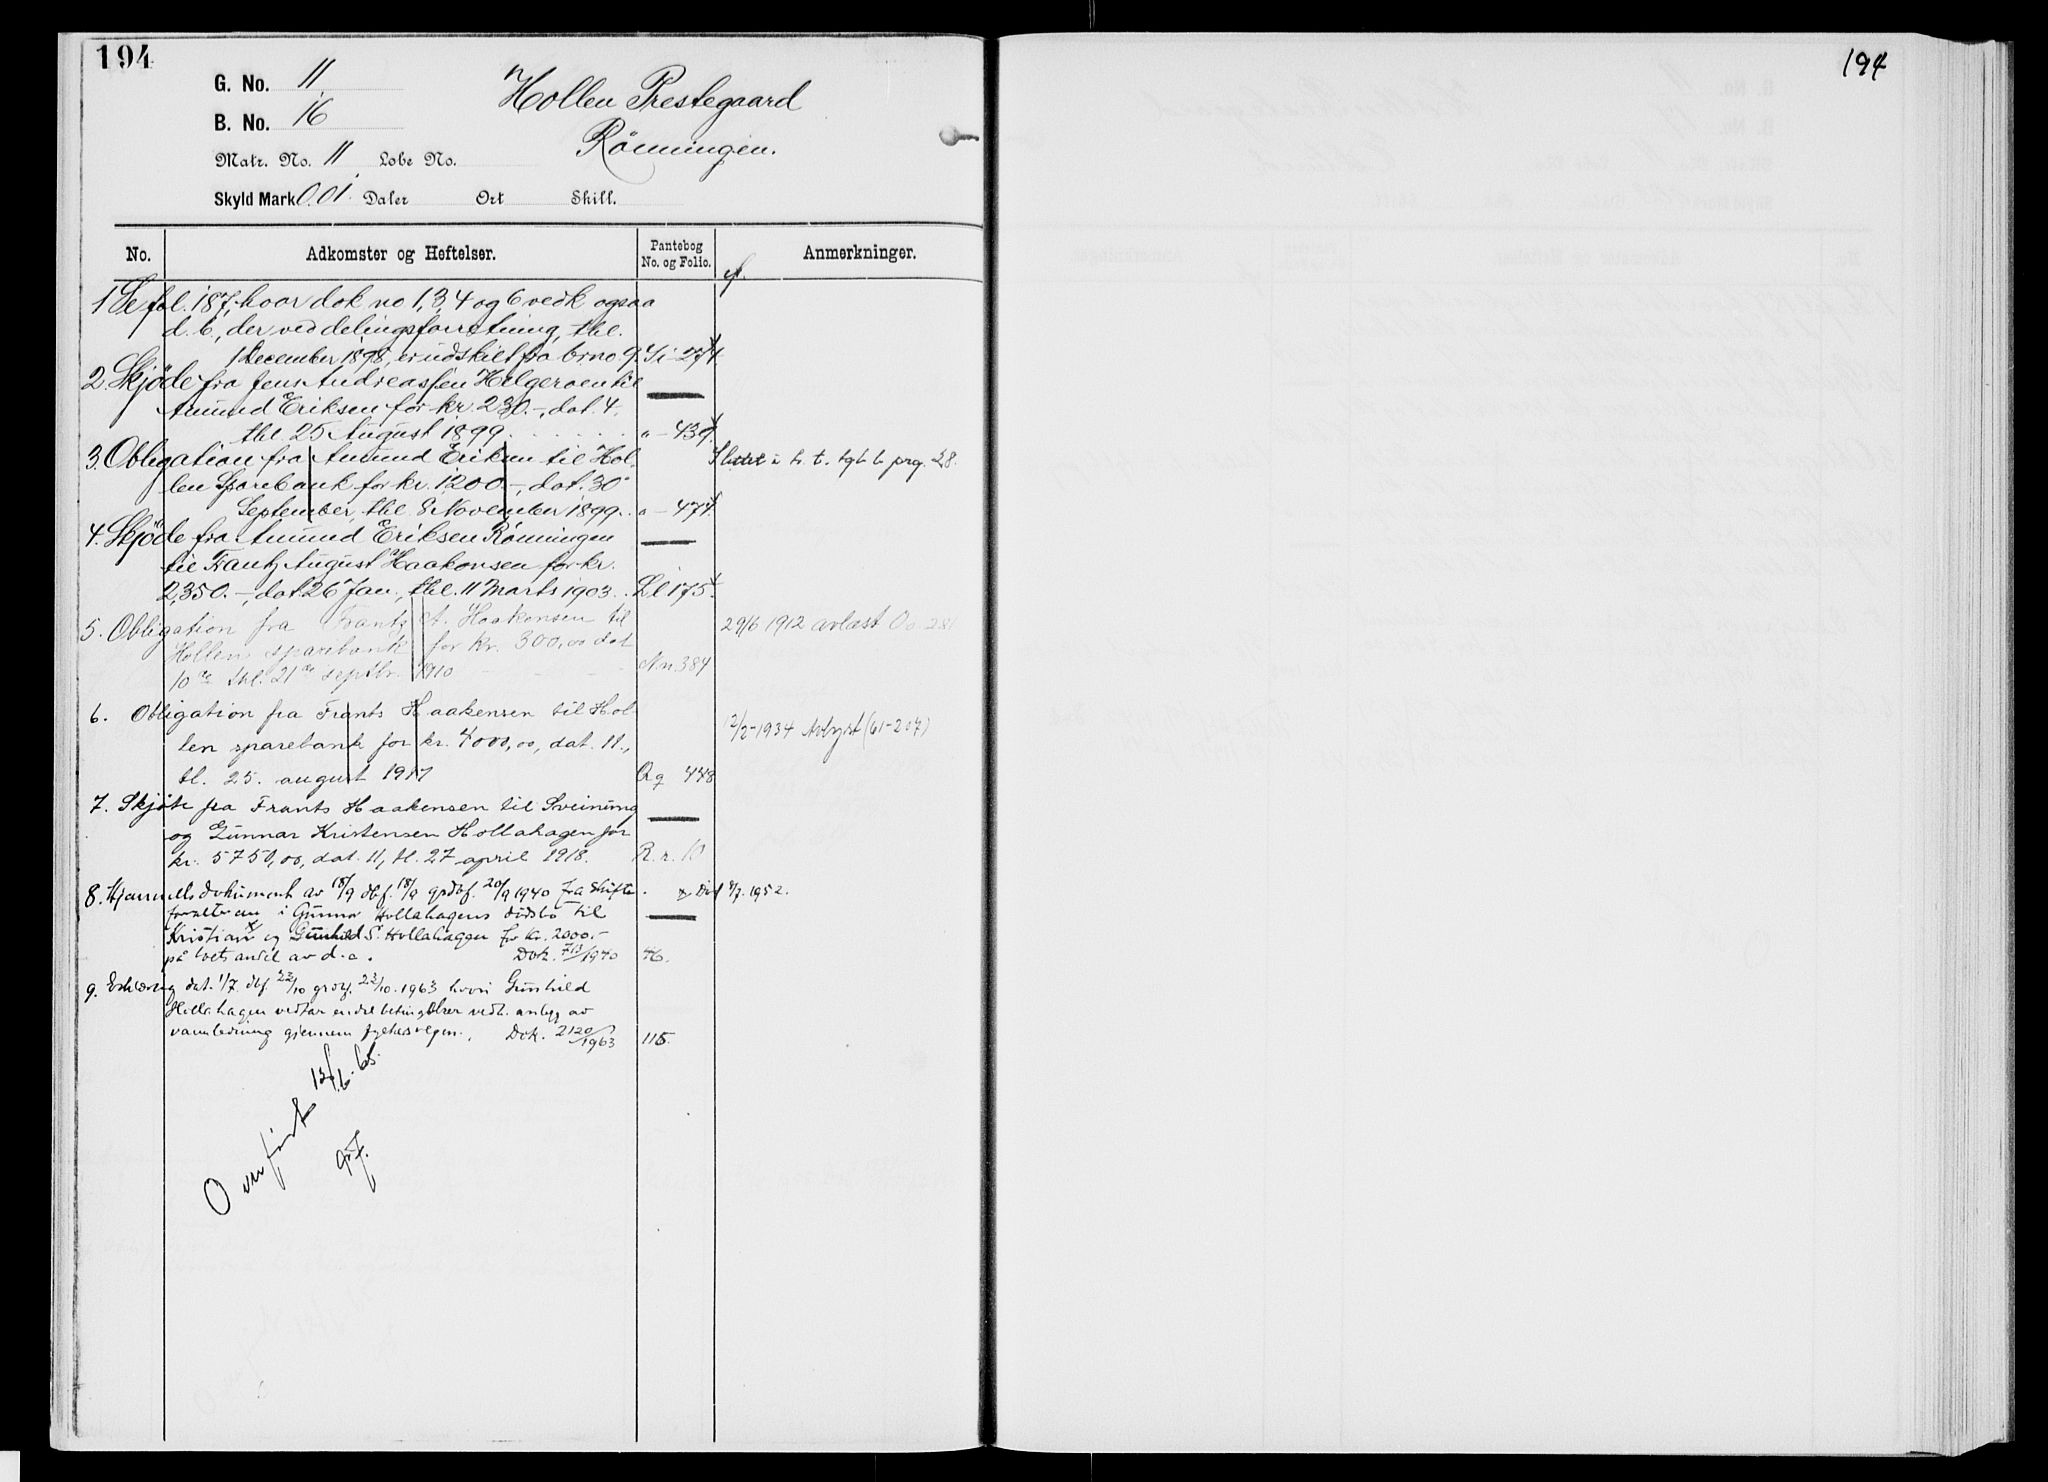 194
G. No. 11
B. No. 16
Matr. No. 11 Løbe No.
Skyld Mark 0.01. Daler Ort Skill.
Hollen Prestegaard
Rönningen.
No. Adkomster og Heftelser. Pantebog No. og Folio. Anmerkninger.
1 Se fol. 187, hvor dok no 1, 3, 4 og 6 vedk ogsaa
d. b., der ved delingsforretning, thl.
1 December 1898, er udskilt fra brno. 9. 274.
2. Skjöde fra Jens Andreassen Helgeroen til
Amund Eriksen for kr. 230.-, dat. 4.
thl. 25 August 1899 " - 439.
3. Obligation fra Amund Eriksen til Hol-
len Sparebank for kr. 1200.-, dat. 30
September, thl. 8 November 1899. " - 474.
Slettet
4. Skjöde fra Amund Eriksen Rönningen
til Frantz August Haakonsen for kr.
2,350.-, dat. 26 Jan., thl. 11 Marts 1903. Ll 175.
5. Obligation fra Frantz A. Haakensen til
Hollen sparebank for kr. 300,00 dat
10de thl. 21de septbr. 1910 Nn. 384
29/6 1912 avlæst Oo. 281
6. Obligation fra Frants Haakensen til Hol-
len sparebank for kr. 4000,00, dat. 11.,
tl. 25. august 1917 Qq 448
12/2-1934 Avlyst (61-207)
7. Skjöte fra Frants Haakensen til Sveinung
og Gunnar Kristensen Hollahagen for
kr. 5750,00, dat. 11, tl. 27 april 1918. R.r. 10
8. Hjemmelsdokument av 18/9 dbf. 18/9 grdbf. 20/9 1940 fra skifte-
forvalteren i Gunnar Hollahagens dødsbo til
Kristian x og Gunhild S. Hollahagen for kr. 2000.-
på halvets andel av d.e. Dok. 713/1940 46.
x Død 8/7. 1952.
9. Erklæring dat. 1/7. dbf. 22/10 grdbf. 23/10. 1963 hvori Gunhild
Hollahagen vedtar endel betingelser vedr. anlegg av
vannledning gjennem fylkesvegen. Dok. 2120/1963 115.
Overført 12/6. 65.
194